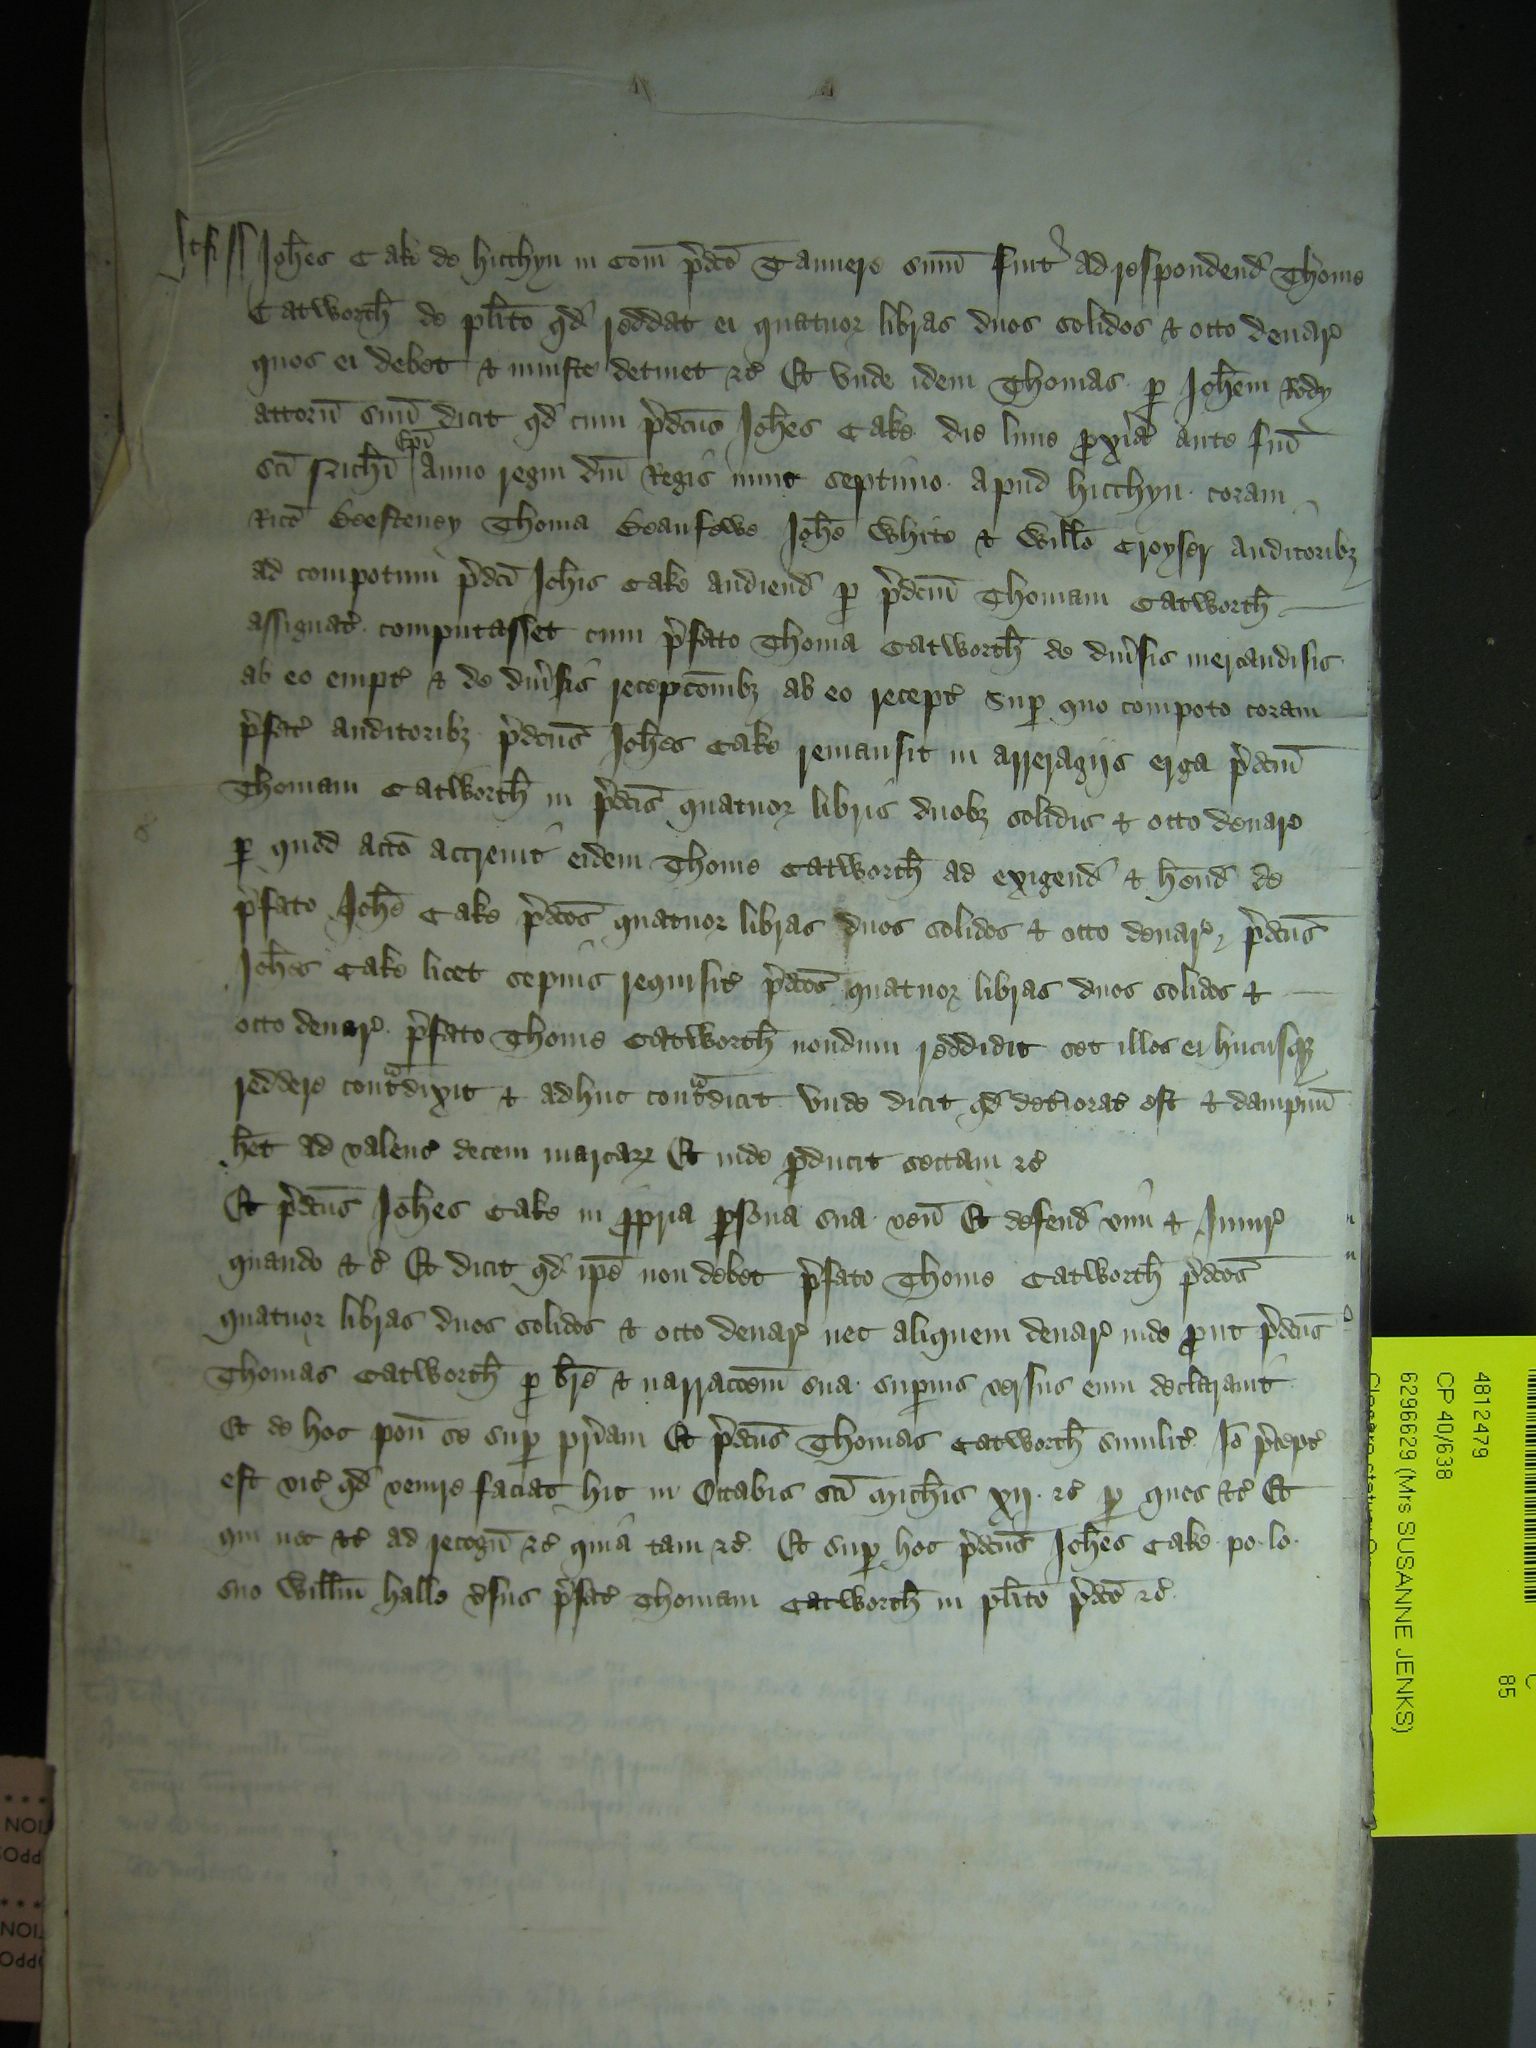 Hertf ss Joh̄es Cake de Hicchyn in Com̄ p̄dc̄o Tannere sum̄ fuit ad respondend' Thome
Catworth̄ de pl̄ito qd' reddat ei quatuor libras duos solidos & octo denar'
quos ei debet & iniuste detinet &c' Et vnde idem Thomas p Joh̄em Rody
attorn̄ suū dicit qd' cum p̄dc̄us Joh̄es Cake die lune prox̄ia ante fm̄
sc̄i Ric̄hi Ep̄i Anno regni dn̄i Regis nunc septimo apud Hicchyn coram
Ric̄o Beesteney Thoma Beaufewe Joh̄e White & Will̄o Croyser Auditoribz
ad compotum p̄dc̄i Joh̄is Cake audiend' p p̄dc̄m Thomam Catworth̄
assignat' computasset cum p̄fato Thoma Catworth̄ de diu'sis mercandisis
ab eo empt' & de diu'sis recepc̄onibz ab eo recept' Sup quo compoto coram
p̄fat' auditoribz p̄dc̄us Joh̄es Cake remansit in arreragijs erga p̄dc̄m
Thomam Catworth̄ in p̄dc̄is quatuor libris duobz solidis & octo denar'
p quod acc̄o accreuit eidem Thome Catworth̄ ad exigend' & h̄end' de
p̄fato Joh̄e Cake p̄dc̄os quatuor libras duos solidos & octo denar' p̄dc̄us
Joh̄es Cake licet sepius requisit' p̄dc̄os quatuor libras duos solidos &
octo denar' p̄fato Thome Catworth̄ nondum reddidit set illos ei hucusqz
reddere cont̄dixit & adhuc cont̄dicit vnde dicit qd' det'iorat' est & dampnū
h̄et ad valenc' decem marcarꝝ Et inde p̄ducit sectam &c'
Et p̄dc̄us Joh̄es Cake in p̄pria p̄sona sua ven̄ Et defend' vim & Iniur'
quando &c' Et dicit qd' ip̄e non debet p̄fato Thome Catworth̄ p̄dc̄os
quatuor libras duos solidos & octo denar' nec aliquem denar' inde prout p̄dc̄us
Thomas Catworth̄ p br̄e & narrac̄oem sua superius versus eum declarauit
Et de hoc pon̄ se sup pr̄iam Et p̄dc̄us Thomas Catworth̄ similit' Io p̄cept'
est vic' qd' venire faciat hic in Octabis sc̄i Mich̄is xij &c' p quos &c' Et
qui nec &c' ad recogn̄ &c' quia tam &c' Et sup hoc p̄dc̄us Joh̄es Cake po. lo.
suo Will̄m Halle v'sus p̄fat' Thomam Catworth̄ in pl̄ito p̄dc̄o &c'
4812479
CP 40/638
6296629 (Mrs SUSANNE JENKS)
85